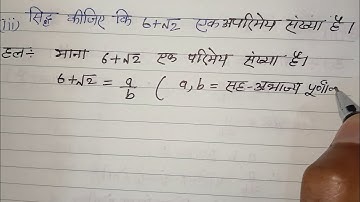 iii) सिद्ध कीजिए कि 6+√2 एक अपरिमेय संख्या है।
हल:- माना 6+√2 एक परिमेय संख्या है।
6+√2 = a/b ( a, b = सह-अभाज्य पूर्णांक